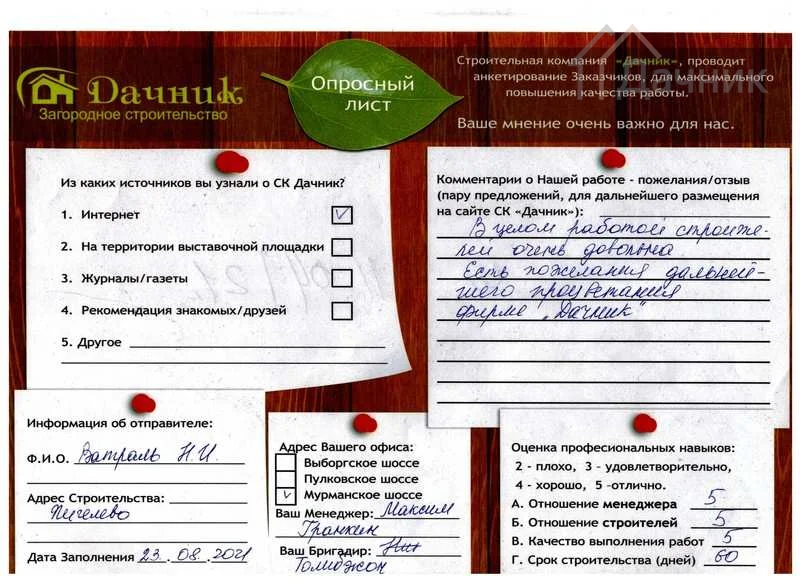 Дачник
Загородное строительство
Опросный
лист
Строительная компания «Дачник», проводит
анкетирование Заказчиков, для максимального
повышения качества работы.
Ваше мнение очень важно для нас.
Дачник
Из каких источников вы узнали о СК Дачник?
1. Интернет
2. На территории выставочной площадки
3. Журналы/газеты
4. Рекомендация знакомых/друзей
5. Другое
Комментарии о Нашей работе - пожелания/отзыв
(пару предложений, для дальнейшего размещения
на сайте СК «Дачник»):
В целом работой строите-
лей очень довольна.
Есть пожелания дальней-
шего процветания
фирме „Дачник"
Информация об отправителе:
Ф.И.О. Ватраль Н.И.
Адрес Строительства:
Пигелево
Дата Заполнения 23.08.2021
Адрес Вашего офиса:
Выборгское шоссе
Пулковское шоссе
Мурманское шоссе
Ваш Менеджер: Максим
Гранкин
Ваш Бригадир:
Толибджон
Оценка профессиональных навыков:
2 - плохо, 3 - удовлетворительно,
4 - хорошо, 5 -отлично.
А. Отношение менеджера 5
Б. Отношение строителей 5
В. Качество выполнения работ 5
Г. Срок строительства (дней) 60